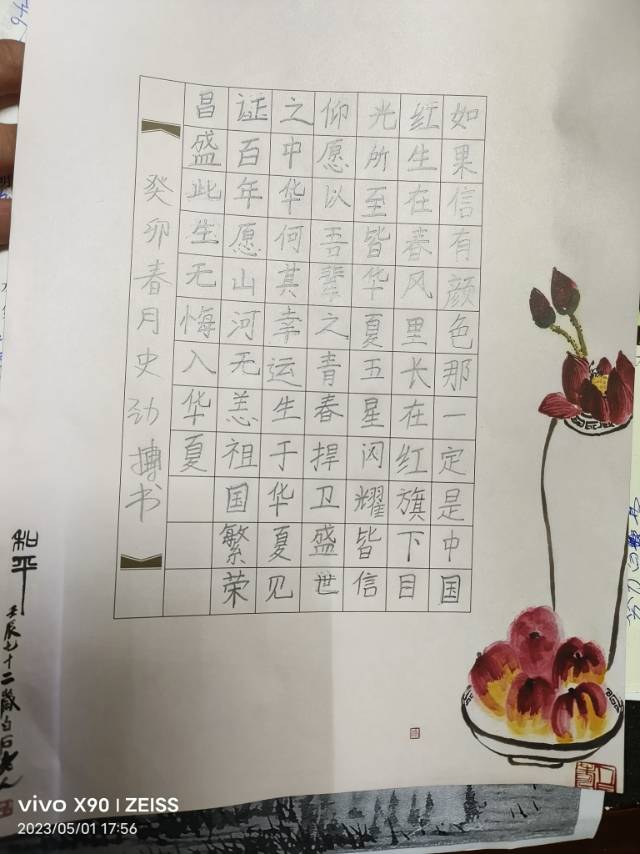 如果信有颜色那一定是中国
红生在春风里长在红旗下目
光所至皆华夏五星闪耀皆信
仰愿以吾辈之青春捍卫盛世
之中华何其幸运生于华夏见
证百年愿山河无恙祖国繁荣
昌盛此生无悔入华夏
癸卯春月史劲搏书
和平
壬辰九十二歲白石老人
vivo X90 | ZEISS
2023/05/01 17:56